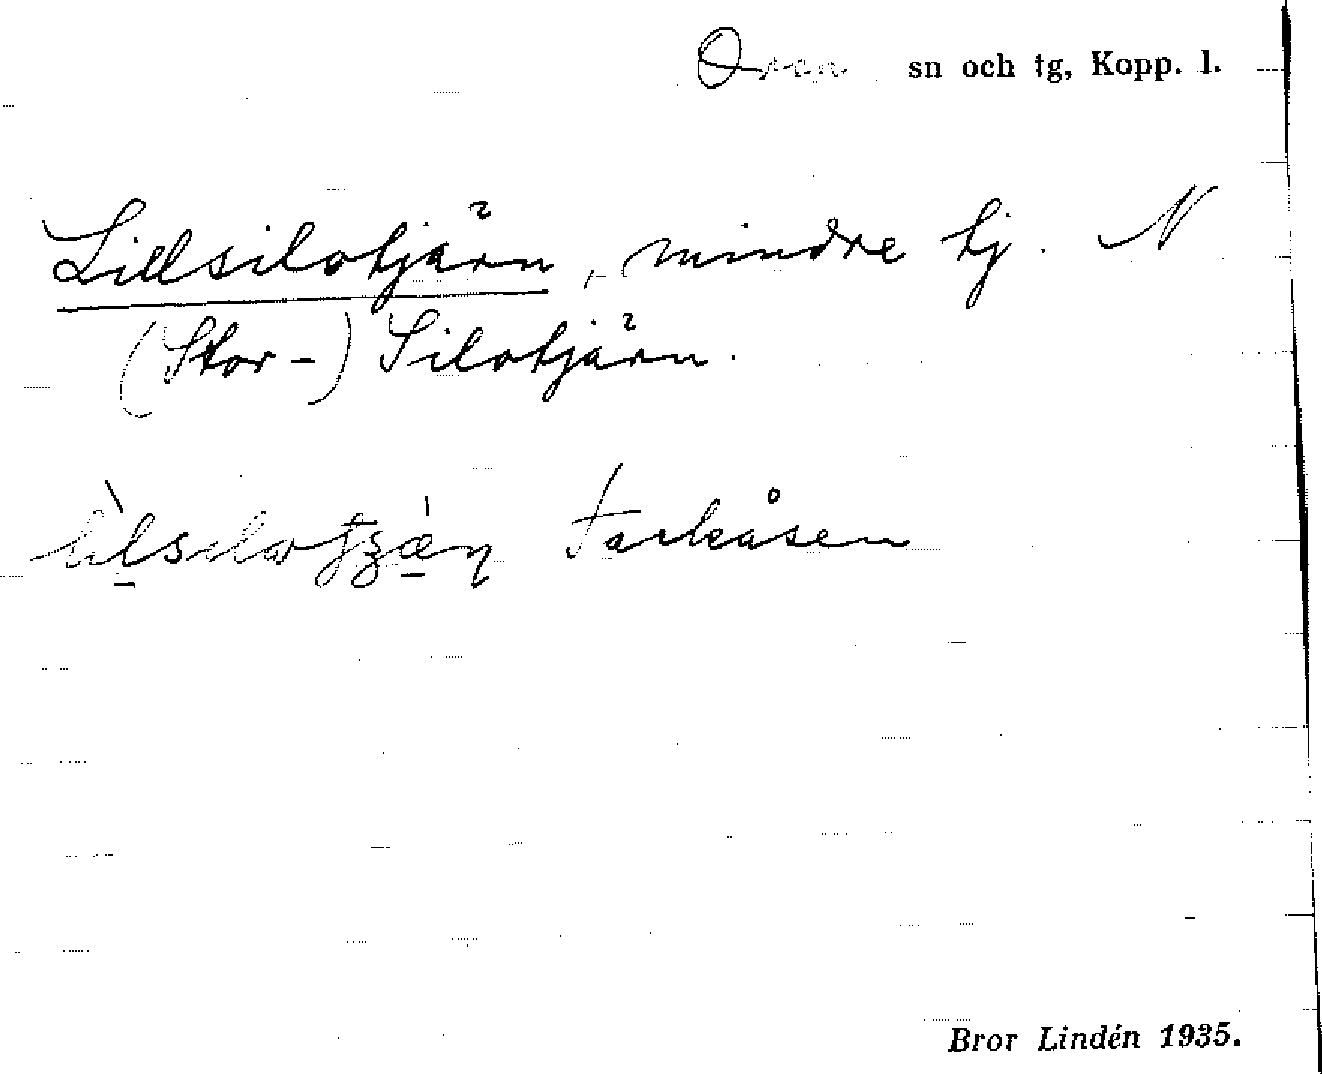 Orsa sn och tg, Kopp. l.
Lillsilotjärn, mindre tj. N
(Stor-) Silotjärn.
Tackåsen
Bror Lindén 1935.